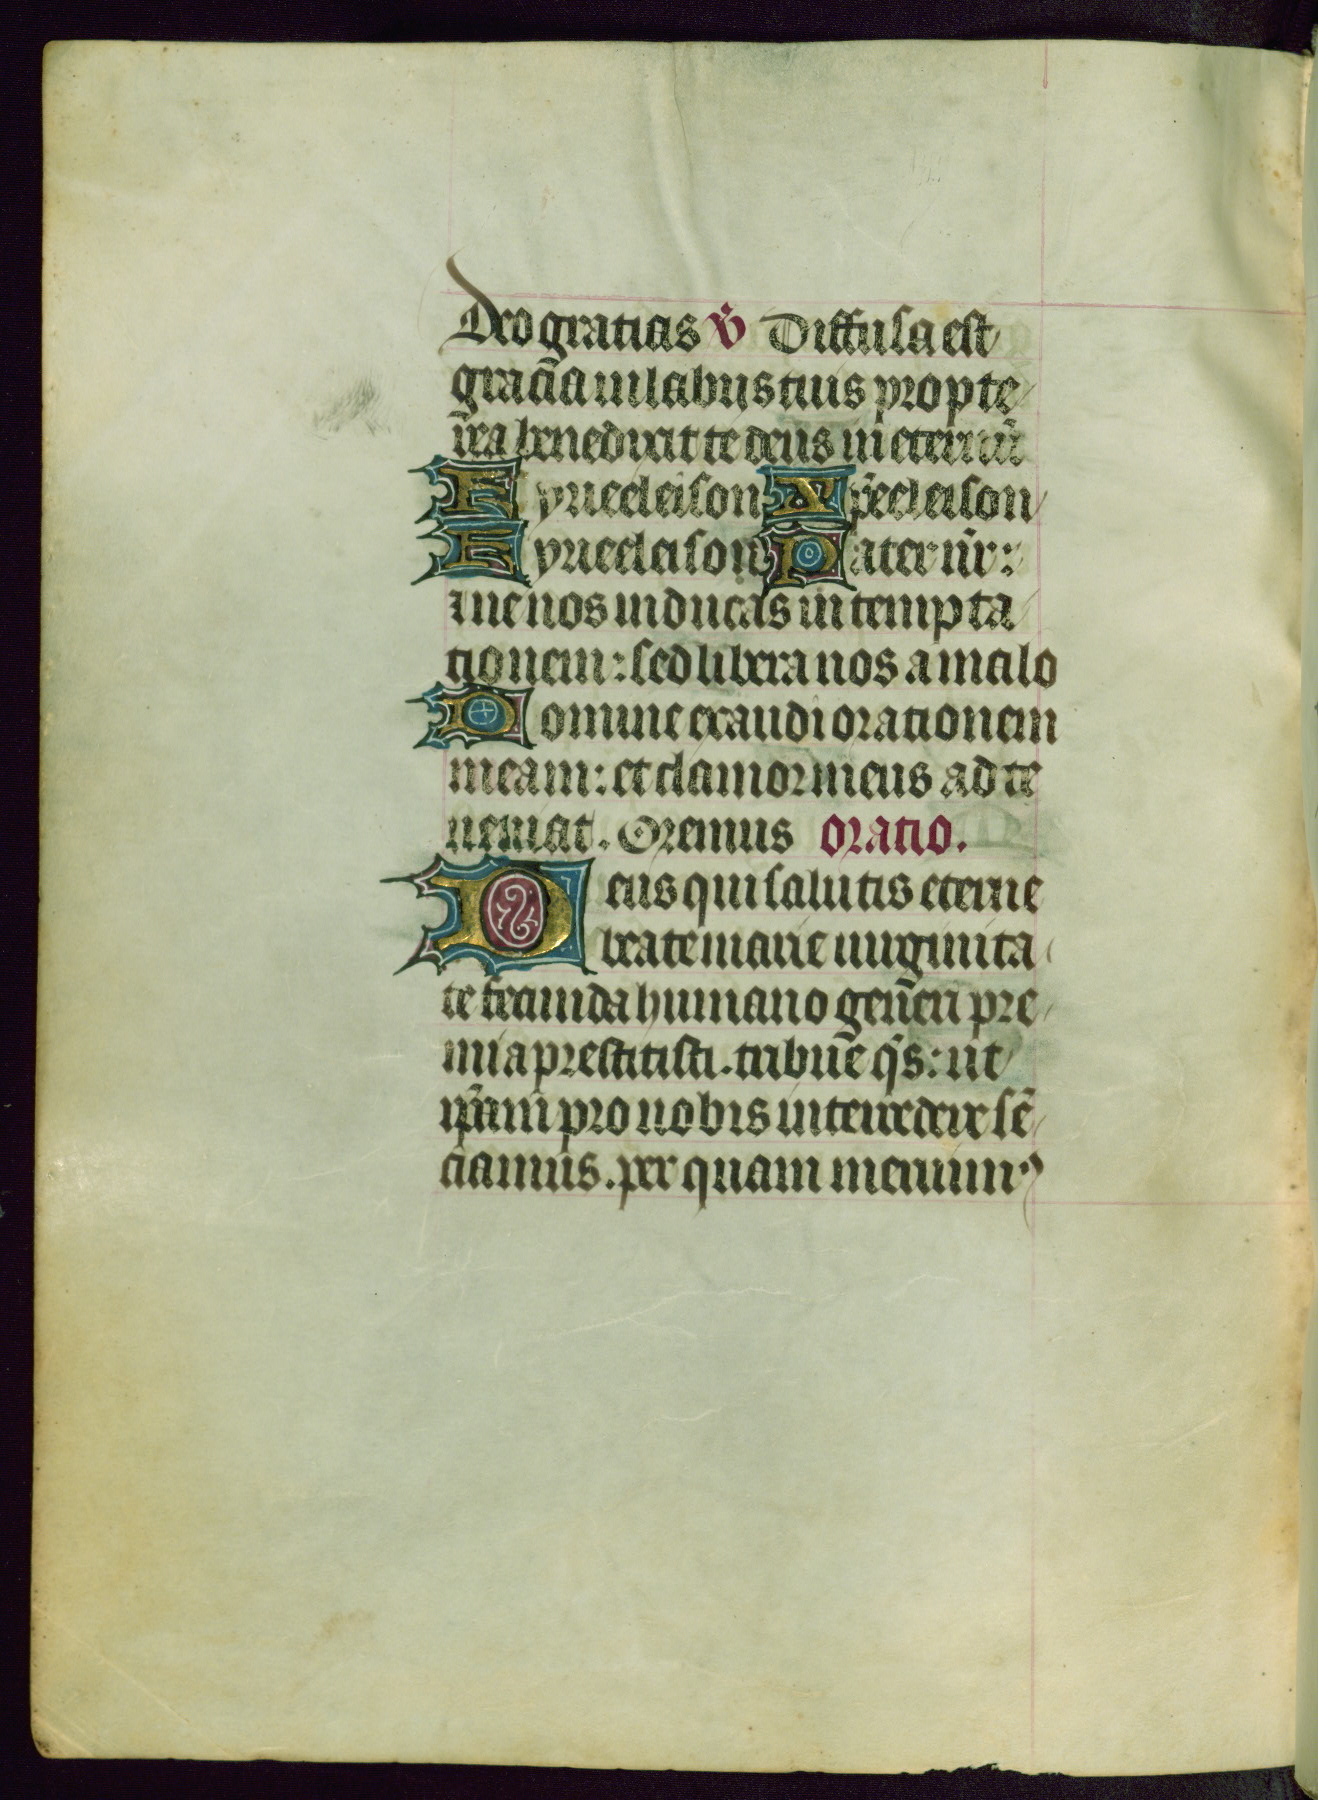 Deo gratias v̄ Diffusa est
graci̅a in labiis tuis propte
r̅ea benedixit te deus in eternu̅
Kyrieeleison Xp̅eeleison
Kyrieeleison Pater nr̅:
Et ne nos inducas in tempta
tionem: sed libera nos a malo
Domine exaudi orationem
meam: et clamor meus ad te
ueniat. Oremus oratio.
Deus qui salutis eterne
beate marie uirginita
te fecunda humano gen̅eri pre
mia prestitisti. tribue̅ qs̅: ut
ip̅am pro nobis intercedere se̅
ciamus. per quam meruim⁹